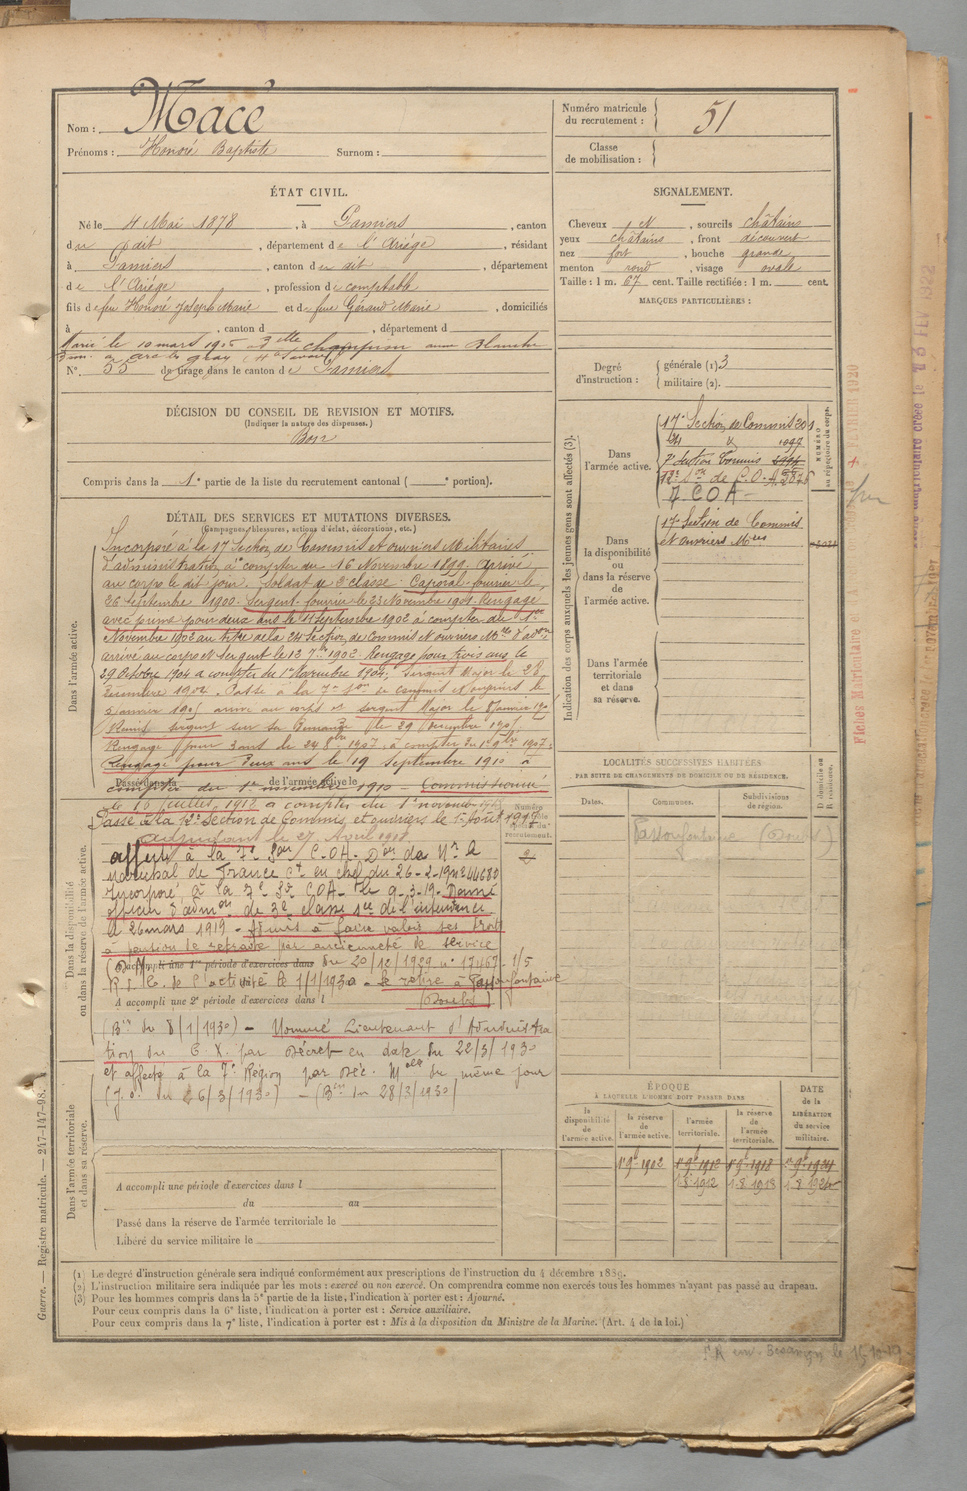 Nom : Macé
Prénoms : Honoré Baptiste Surnom :
Numéro matricule du recrutement : 51
Classe de mobilisation :
ÉTAT CIVIL.
Né le 4 Mai 1878, à Pamiers, canton
du dit, département de l'Ariége, résidant
à Pamiers, canton du dit, département
de l'Ariége, profession de comptable
fils de feu Honoré Joseph Marie et de feue Gérand Marie, domiciliés
à , canton d , département d
Marié le 10 mars 1915 à Delle Champion Blanche
N° 55 de tirage dans le canton de Pamiers
SIGNALEMENT.
Cheveux N, sourcils châtains
yeux châtains, front découvert
nez fort, bouche grande
menton rond, visage ovale
Taille : 1 m. 67 cent. Taille rectifiée : 1 m. cent.
MARQUES PARTICULIÈRES :
Degré d'instruction : générale (1) 3
militaire (2).
DÉCISION DU CONSEIL DE REVISION ET MOTIFS.
(Indiquer la nature des dispenses.)
Bon
Compris dans la 1e partie de la liste du recrutement cantonal ( e portion).
Indication des corps auxquels les jeunes gens sont affectés (3).
NUMÉRO au répertoire du corps.
Dans l'armée active.
17e Section de Commis
7e Section Commis
7 COA
Dans la disponibilité ou dans la réserve de l'armée active.
17e Section de Commis
et ouvriers Mres
Dans l'armée territoriale et dans sa réserve.
DÉTAIL DES SERVICES ET MUTATIONS DIVERSES.
(Campagnes, blessures, actions d'éclat, décorations, etc.)
Dans l'armée active.
Incorporé à la 17e Section de Commis et ouvriers Militaires
d'administration à compter du 16 Novembre 1899. Arrivé
au corps le dit jour. Soldat de 2e classe. Caporal fourrier le
26 Septembre 1900. Sergent fourrier le 23 Novembre 1901. Rengagé
avec prime pour deux ans le 11 Septembre 1902 à compter du 1er
Novembre 1902 au titre de la 24e Section de Commis et ouvriers Mres d'adon
arrivé au corps et Sergent le 13 1902. Rengagé pour trois ans le
29 Octobre 1904 à compter du 1er Novembre 1904. Sergent Major le 28
Décembre 1904. Passé à la 7e Son de commis et ouvriers le
5 janvier 1905 arrivé au corps et sergent Major le 8 Janvier 190
Remis sergent sur sa demande le 29 Décembre 1905
Rengagé pour 3 ans le 24 8bre 1907 à compter du 1er 9bre 1907.
Rengagé pour deux ans le 19 Septembre 1910 à
Passé dans la de l'armée active le
compter du 1er novembre 1910 - Commissionné
le 16 juillet 1912 à compter du 1er novembre 1912
Dans la disponibilité ou dans la réserve de l'armée active.
Passé à la 12e Section de Commis et ouvriers le 1er Août 1912
Adjudant le 27 Avril 1918
affecté à la 7e Son C.O.A. Don de Mr le
Maréchal de France Ct en chef du 26-2-19 n° 44680
Incorporé à la 7e Son COA le 9-3-19. Nommé
officier d'admon de 3e classe sce de l'intendance
le 26 mars 1919 - Admis à faire valoir ses droits
à pension de retraite par ancienneté de service
A accompli une 1re période d'exercices dans
du 20/12/1929 n° 17467-1/5
R. d. C. de l'activité le 1/1/1930 - se retire à Passonfontaine
A accompli une 2e période d'exercices dans l
(Doubs)
(Bin du 8/1/1930) - Nommé Lieutenant d'Administra
tion du C.X. par Décret en date du 22/3/1930
et affecté à la 7e Région par Déc. Mlle du même jour
(J.O. du 26/3/1930) - (Bin du 28/3/1930)
Numéro
recrutement.
LOCALITÉS SUCCESSIVES HABITÉES
PAR SUITE DE CHANGEMENTS DE DOMICILE OU DE RÉSIDENCE.
D domicile ou R résidence.
Dates. Communes. Subdivisions de région.
Passonfontaine (Doubs)
ÉPOQUE
À LAQUELLE L'HOMME DOIT PASSER DANS
DATE de la LIBÉRATION du service militaire.
la disponibilité de l'armée active.
la réserve de l'armée active.
l'armée territoriale.
la réserve de l'armée territoriale.
1er 9bre 1902 1er 9bre 1912 1er 9bre 1918 1er 9bre 1924
1.8.1912 1.8.1918 1.8.1924
Dans l'armée territoriale et dans sa réserve.
A accompli une période d'exercices dans l
du au
Passé dans la réserve de l'armée territoriale le
Libéré du service militaire le
(1) Le degré d'instruction générale sera indiqué conformément aux prescriptions de l'instruction du 4 décembre 1889.
(2) L'instruction militaire sera indiquée par les mots : exercé ou non exercé. On comprendra comme non exercés tous les hommes n'ayant pas passé au drapeau.
(3) Pour les hommes compris dans la 5e partie de la liste, l'indication à porter est : Ajourné.
Pour ceux compris dans la 6e liste, l'indication à porter est : Service auxiliaire.
Pour ceux compris dans la 7e liste, l'indication à porter est : Mis à la disposition du Ministre de la Marine. (Art. 4 de la loi.)
Guerre. — Registre matricule. — 247-147-98.
Besançon le 15-10-19